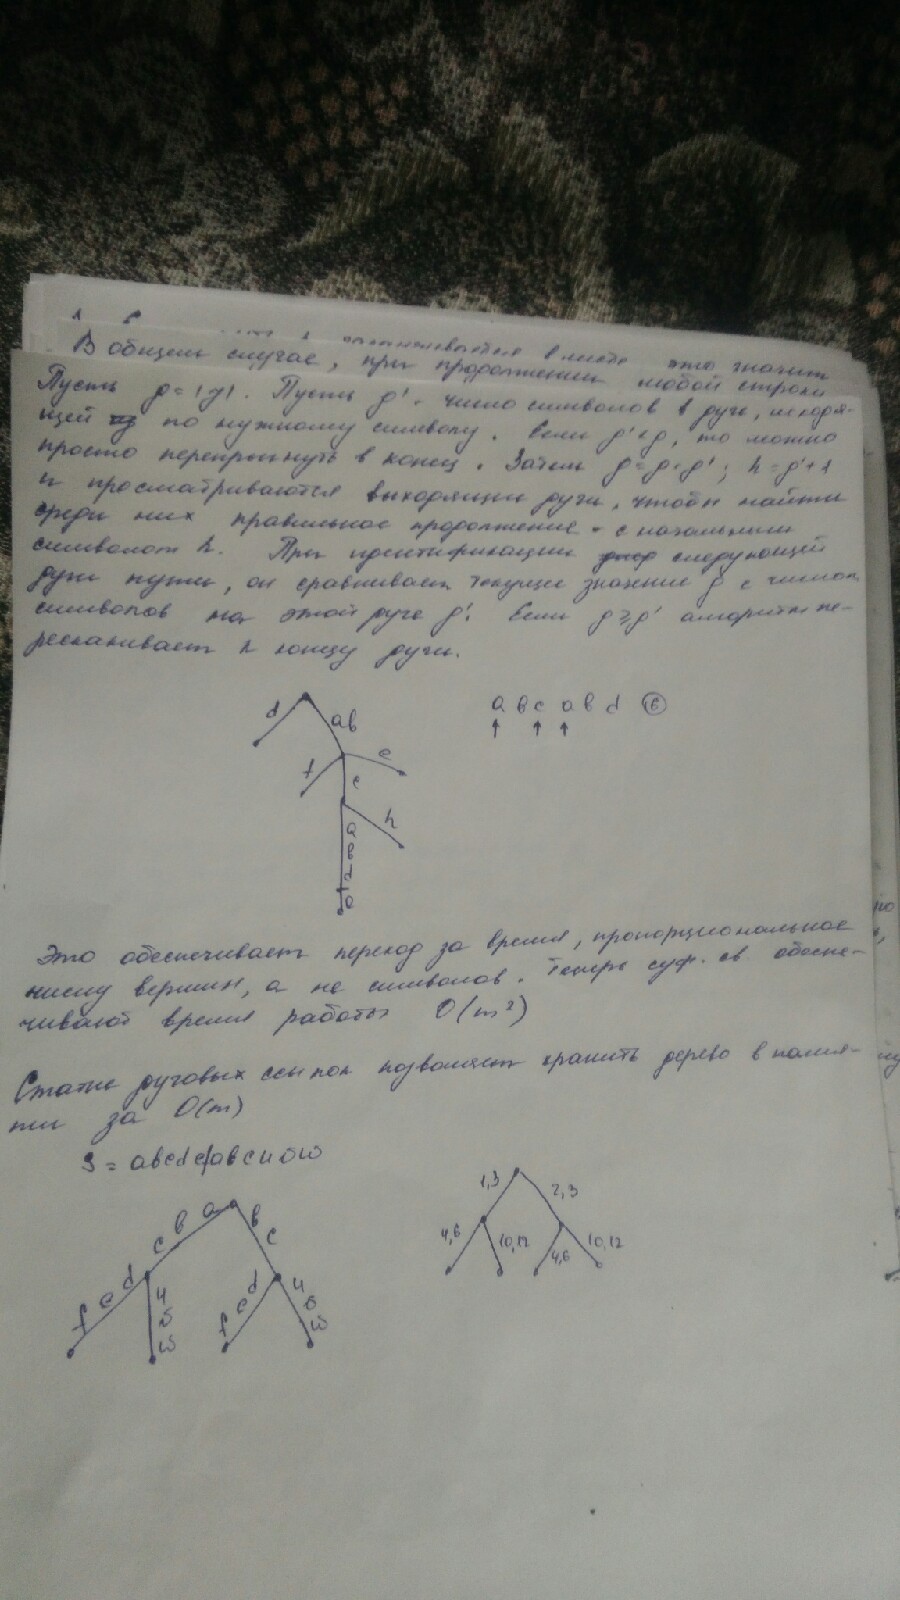 В общем случае, при продолжении любой строки
это значит
Пусть g = |y|. Пусть g' - число символов в дуге, исходя-
щей по нужному символу. Если g' < g, то можно
просто перепрыгнуть в конец. Затем g = g - g'; h = g' + 1
и просматриваются выходящии дуги, чтобы найти
среди них правильное продолжение - с начальным
символом h. При идентификации следующей
дуги нужны, он сравнивает текущее значение g с числом
символов на этой дуге g'. Если g ≥ g' алгоритм пе-
рескакивает к концу дуги.
d ab
f e
c
h
a b c a b d 6
Это обеспечивает переход за время, пропорциональное
числу вершин, а не символов. Теперь суф. св. обеспе-
чивают время работы O(m²)
дуговых ссылок позволяет хранить дерево в памя-
ти за O(m)
S = abcdefabcuvw
a b c
b c
d e f
u v w
d e f
u v w
1,3 2,3
4,6 10,12 4,6 10,12